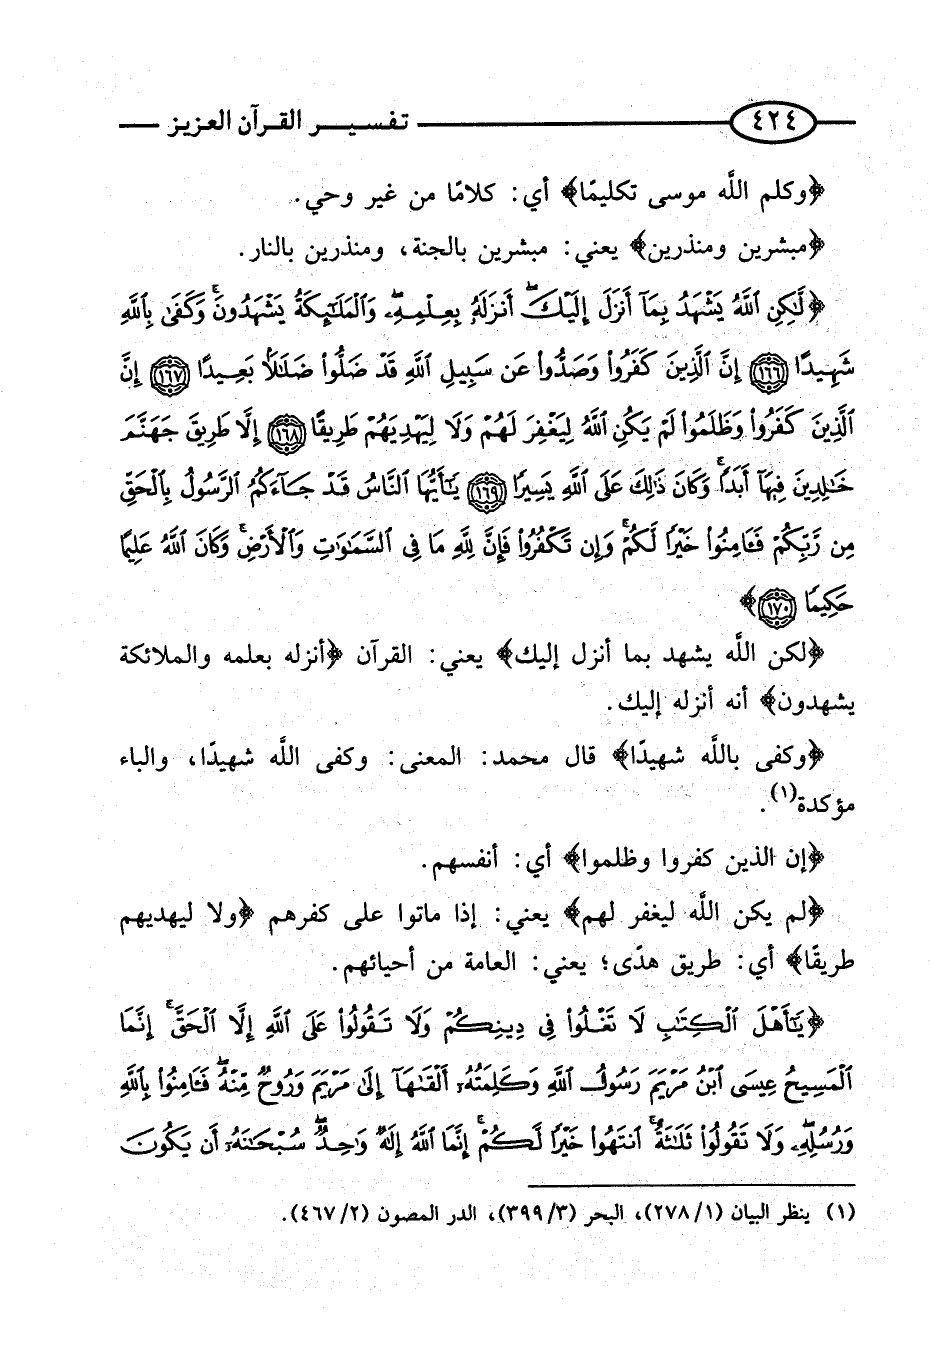 ٤٢٤ تفسير القرآن العزيز
﴿وكلم اللَّه موسى تكليمًا﴾ أي: كلامًا من غير وحي.
﴿مبشرين ومنذرين﴾ يعني: مبشرين بالجنة، ومنذرين بالنار.
﴿لَّٰكِنِ ٱللَّهُ يَشْهَدُ بِمَآ أَنزَلَ إِلَيْكَۖ أَنزَلَهُۥ بِعِلْمِهِۦۖ وَٱلْمَلَٰٓئِكَةُ يَشْهَدُونَۚ وَكَفَىٰ بِٱللَّهِ
شَهِيدًا ١٦٦ إِنَّ ٱلَّذِينَ كَفَرُوا۟ وَصَدُّوا۟ عَن سَبِيلِ ٱللَّهِ قَدْ ضَلُّوا۟ ضَلَٰلًۢا بَعِيدًا ١٦٧ إِنَّ
ٱلَّذِينَ كَفَرُوا۟ وَظَلَمُوا۟ لَمْ يَكُنِ ٱللَّهُ لِيَغْفِرَ لَهُمْ وَلَا لِيَهْدِيَهُمْ طَرِيقًا ١٦٨ إِلَّا طَرِيقَ جَهَنَّمَ
خَٰلِدِينَ فِيهَآ أَبَدًاۚ وَكَانَ ذَٰلِكَ عَلَى ٱللَّهِ يَسِيرًا ١٦٩ يَٰٓأَيُّهَا ٱلنَّاسُ قَدْ جَآءَكُمُ ٱلرَّسُولُ بِٱلْحَقِّ
مِن رَّبِّكُمْ فَـَٔامِنُوا۟ خَيْرًا لَّكُمْۚ وَإِن تَكْفُرُوا۟ فَإِنَّ لِلَّهِ مَا فِى ٱلسَّمَٰوَٰتِ وَٱلْأَرْضِۚ وَكَانَ ٱللَّهُ عَلِيمًا
حَكِيمًا ١٧٠﴾
﴿لكن اللَّه يشهد بما أنزل إليك﴾ يعني: القرآن ﴿أنزله بعلمه والملائكة
يشهدون﴾ أنه أنزله إليك.
﴿وكفى باللَّه شهيدًا﴾ قال محمد: المعنى: وكفى اللَّه شهيدًا، والباء
مؤكدة(١).
﴿إن الذين كفروا وظلموا﴾ أي: أنفسهم.
﴿لم يكن اللَّه ليغفر لهم﴾ يعني: إذا ماتوا على كفرهم ﴿ولا ليهديهم
طريقًا﴾ أي: طريق هدًى؛ يعني: العامة من أحيائهم.
﴿يَٰٓأَهْلَ ٱلْكِتَٰبِ لَا تَغْلُوا۟ فِى دِينِكُمْ وَلَا تَقُولُوا۟ عَلَى ٱللَّهِ إِلَّا ٱلْحَقَّۚ إِنَّمَا
ٱلْمَسِيحُ عِيسَى ٱبْنُ مَرْيَمَ رَسُولُ ٱللَّهِ وَكَلِمَتُهُۥٓ أَلْقَىٰهَآ إِلَىٰ مَرْيَمَ وَرُوحٌ مِّنْهُۖ فَـَٔامِنُوا۟ بِٱللَّهِ
وَرُسُلِهِۦۖ وَلَا تَقُولُوا۟ ثَلَٰثَةٌۚ ٱنتَهُوا۟ خَيْرًا لَّكُمْۚ إِنَّمَا ٱللَّهُ إِلَٰهٌ وَٰحِدٌۖ سُبْحَٰنَهُۥٓ أَن يَكُونَ
(١) ينظر البيان (١/ ٢٧٨)، البحر (٣/ ٣٩٩)، الدر المصون (٢/ ٤٦٧).